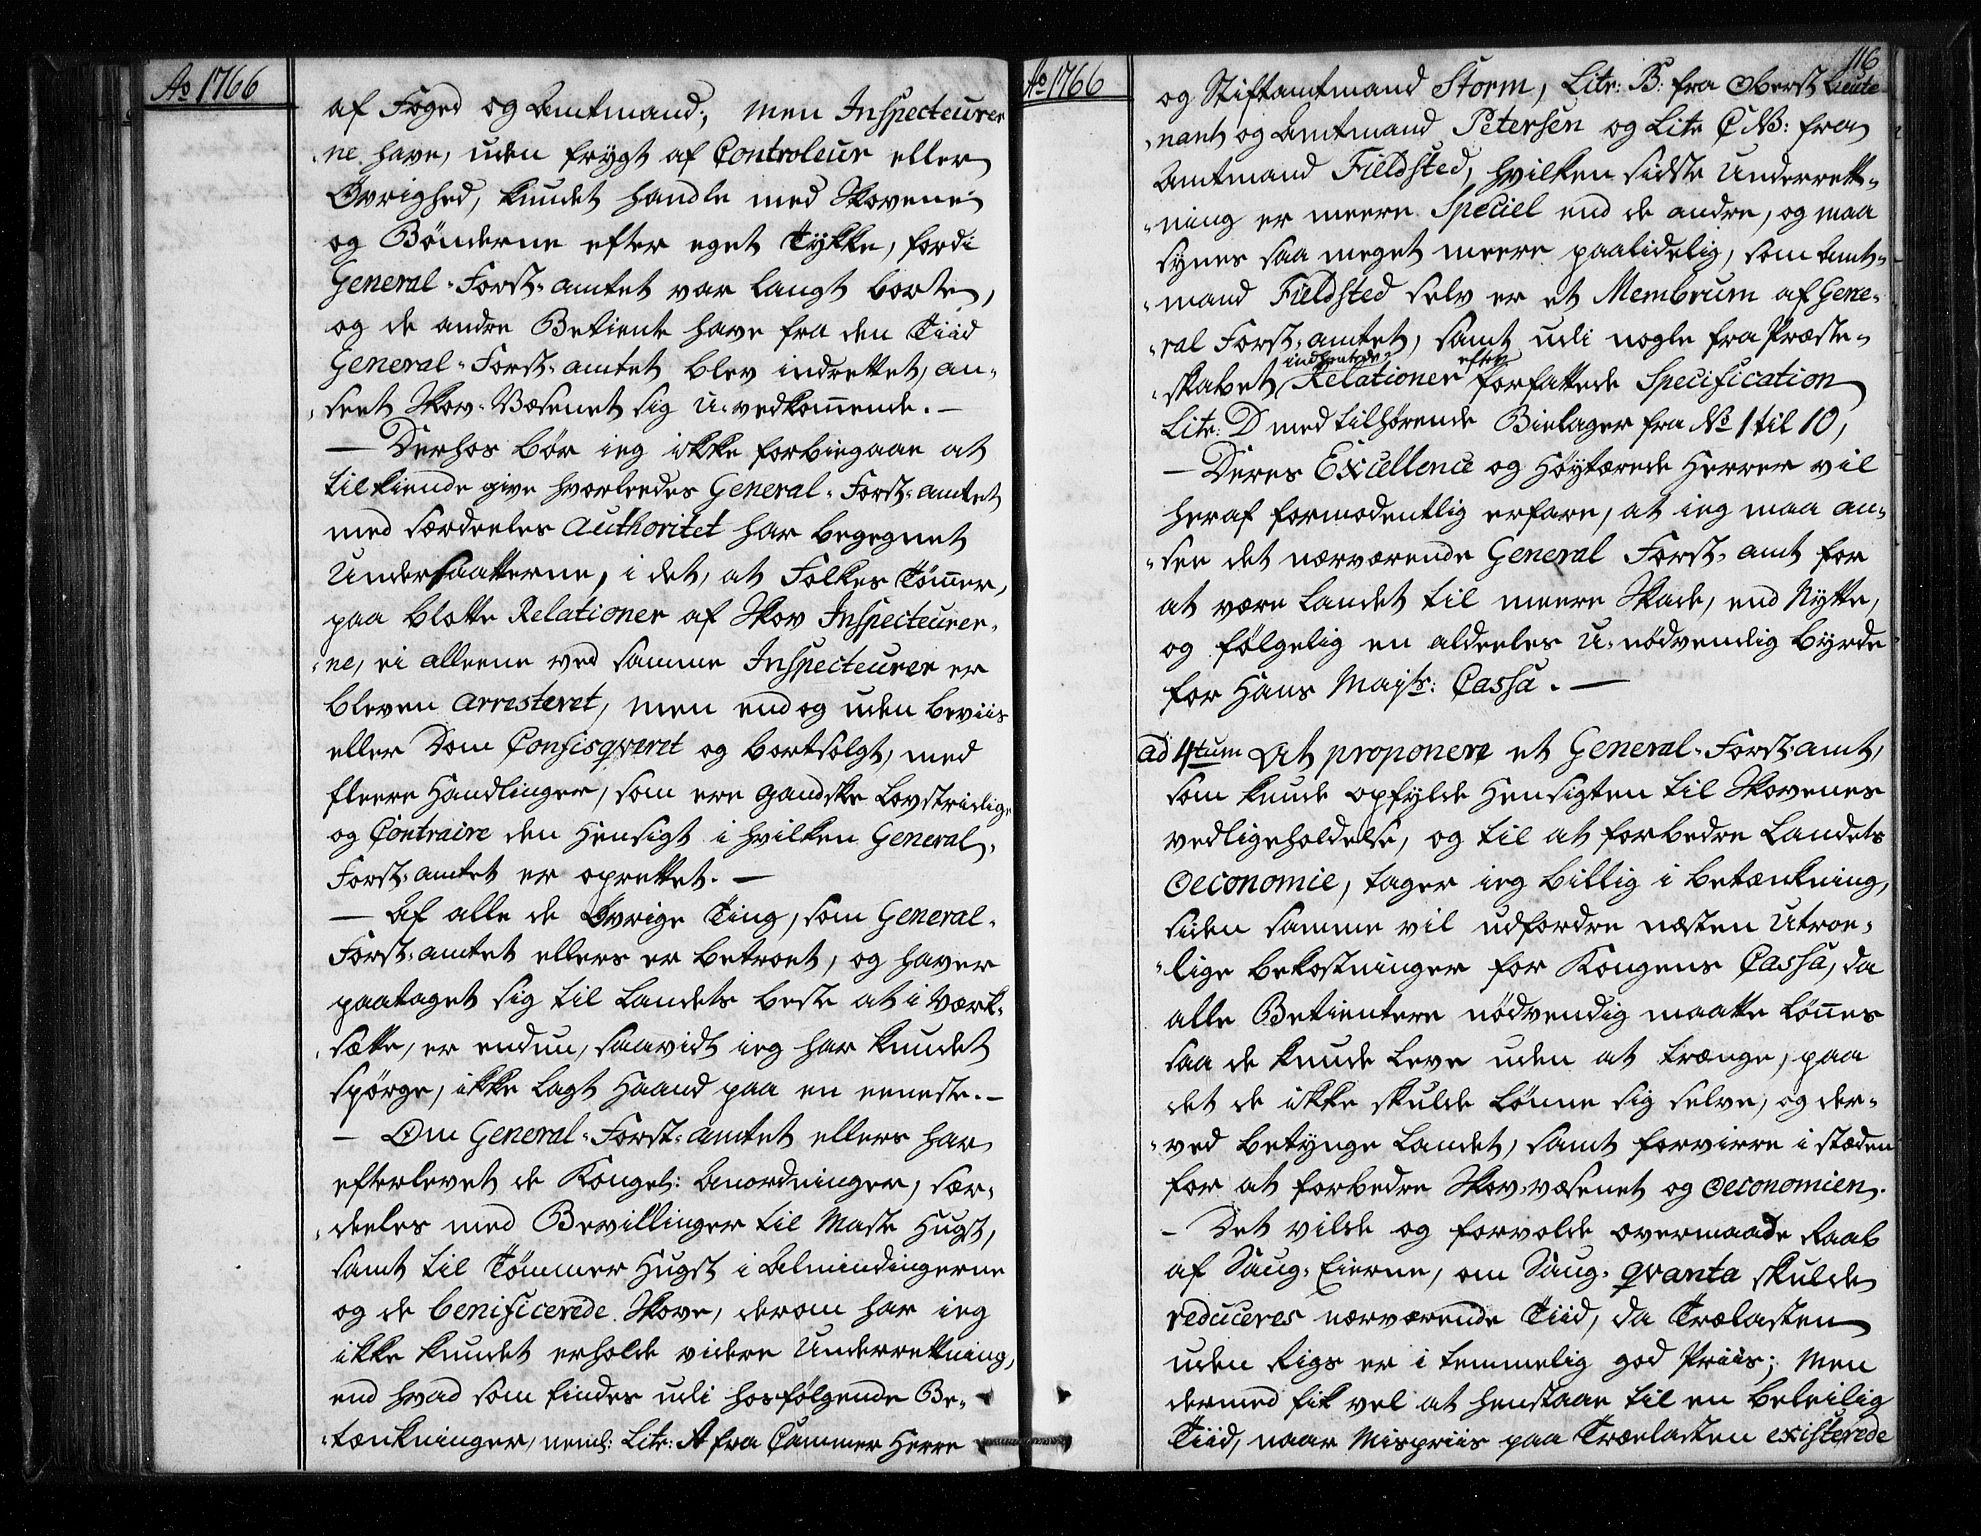 Ao 1766
af Foged og Amtmand; men Inspecteurer
ne have, uden frygt af Controleur eller
Øvrighed, kundet handle med Skovene
og Bønderne efter eget Tÿkke, fordi
General-Forst-amtet var langt borte,
og de andre Betiente have fra den Tiid
General-Forst-amtet blev indrettet, an-
seet Skov-Væsenet sig u-vedkom̄ende. —
— Derhos bør ieg ikke forbiegaae at
tilkiende give hvorleedes General-Forst-amtet
med særdeeles authoritet har begegnet
Undersaatterne, i det, at Folkes Tøm̄er,
paa blotte Relationer af Skov Inspecteurer-
ne, ei alleene ved samme Inspecteurer er
bleven arresteret, men endog uden beviis
eller Dom Confisqveret og bortsolgt, med
fleere Handlinger, som ere gandske Lovstridige
og Contraire den Hensigt i hvilken General
Forst-amtet er oprettet. —
— Af alle de Øvrige Ting, som General-
Forst-amtet ellers er betroet, og haver
paataget sig til Landets beste at i værk-
sætte, er endnu, saavidt ieg har kundet
spørge, ikke lagt Haand paa en eeneste. —
— Om General-Forst-amtet ellers har
efterlevet de Kongel: Anordninger, sær-
deeles med Bevillinger til Maste Hugst,
samt til Tømmer Hugst i Almindingerne
og de benificerede Skove, derom har ieg
ikke kundet erholde videre Underretning,
end hvad som findes udi hosfølgende Be-
tænkninger, neml: Litr: A fra Cammer Herre
Ao 1766
116
og Stiftamtmand Storm, Litr: B: fra Oberst Lieute
nant og Amtmand Petersen og Litr C NB: fra
Amtmand Fieldsted, hvilken sidste Underrett-
ning er meere Speciel end de andre, og maa
synes saa meget meere paalidelig, som Amt-
mand Fieldsted selv er et Membrum af Gene-
ral Forst-amtet, samt udi nogle fra Præste-
indhentede efter
skabet Relationer forfattede Specification
Litr: D med tilhørende Bielager fra No 1 til 10,
— Deres Excellence og Høÿtærede Herrer vil
heraf formodentlig erfare, at ieg maa an-
see det nærværende General Forst-amt for
at være Landet til meere Skade, end Nytte,
og følgelig en aldeeles u-nødvendig byrde
for Hans Majts: Cassa. —
ad 4tum At proponere et General-Forst-amt,
som kunde opfylde Hensigten til Skovenes
vedligeholdelse, og til at forbedre Landets
Oeconomie, tager ieg billig i betænkning,
siden samme vil udfordre næsten Utroe-
lige bekostninger for Kongens Cassa, da
alle Betientere nødvendig maatte Løn̄es
saa de kunde leve uden at trænge, paa
det de ikke skulde lønne sig selve, og der-
ved betÿnge Landet, samt forvirre i stæden
for at forbedre Skov-væsenet og Oeconomien.
— Det vilde og forvolde overmaade Raab
af Saug-Eierne, om Saug-qvanta skulde
reduceres nærværende Tiid, da Trælasten
uden Rigs er i temmelig god Priis; Men
dermed fik vel at henstaae til en beleilig
Tiid, naar Mispriis paa Trælasten existerede